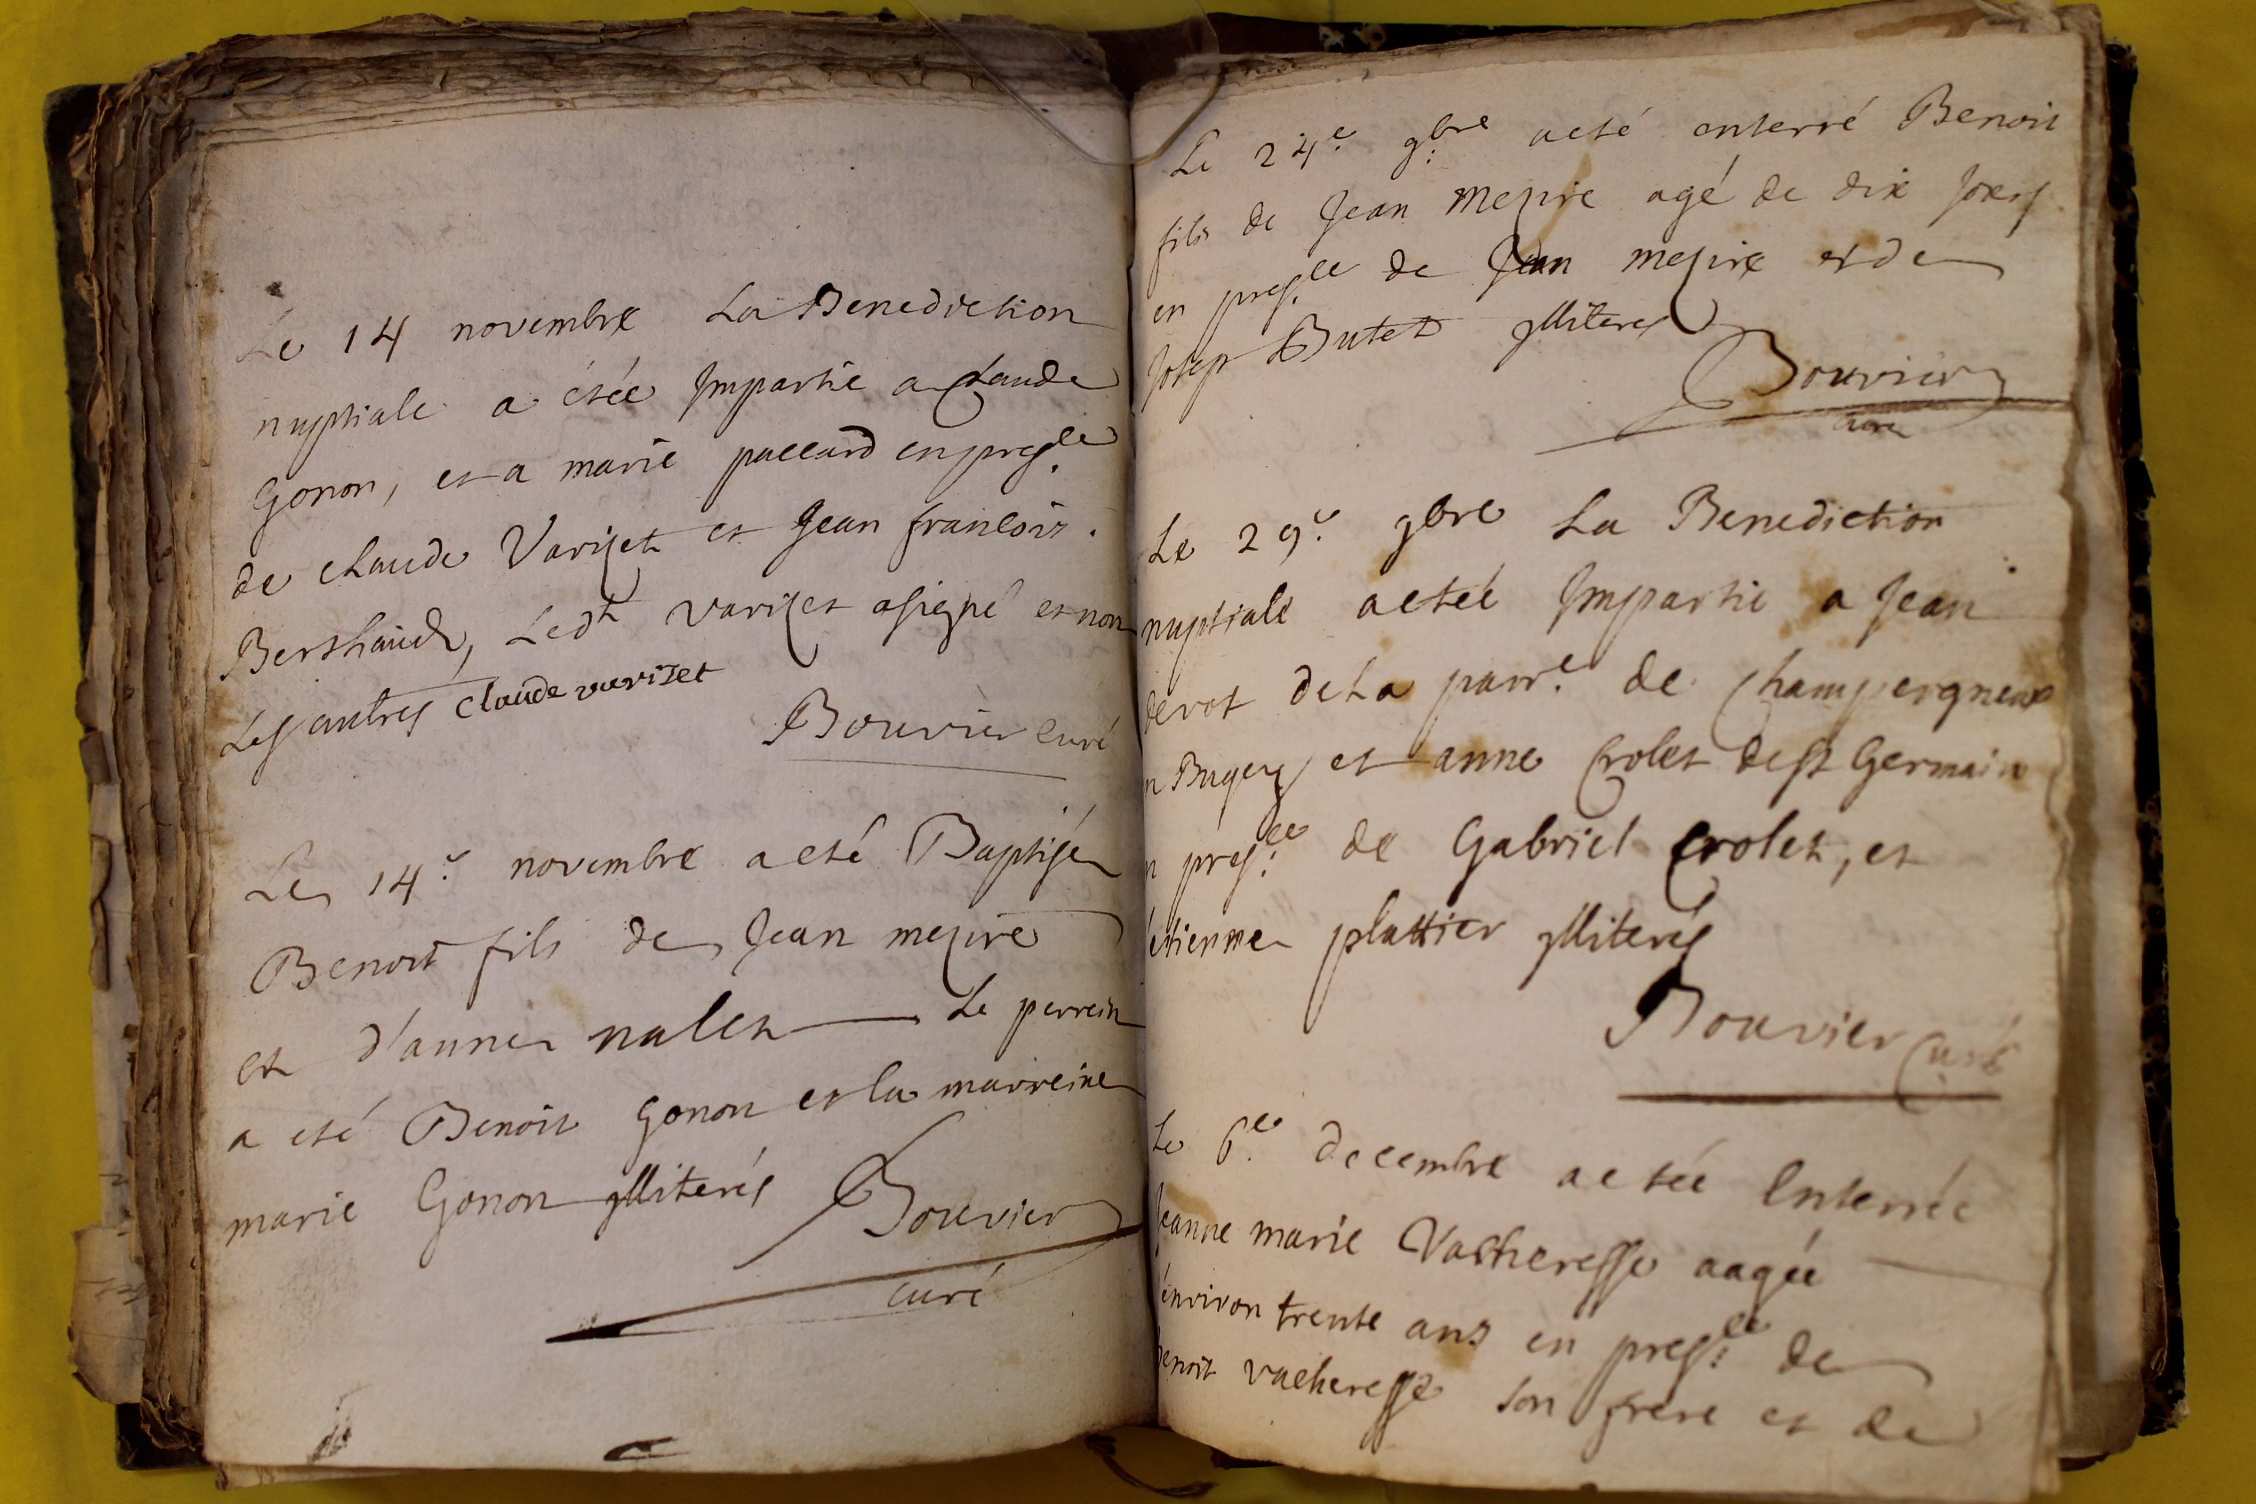 Le 14 novembre La Benediction
nuptiale a étée Impartie a Claude
Gonon, et a marie paccard en pres.ce
de claude Varizet et Jean francois
Berthaud, Ledt varizet a signé et non
Les autres claude varizet
Bouvier curé
Le 14.e novembre a eté Baptisé
Benoit fils de Jean mezire
et d'anne nalet Le perrein
a eté Benoit Gonon et la marreine
marie Gonon Illiterés
Bouvier
curé
Le 24.e 9bre a eté enterré Benoit
fils de Jean Mezire agé de dix jours
en pres.ce de Jean mezire et de
Josep Butet Illiteres
Bouvier
curé
Le 29.e 9bre La Benediction
nuptiale a etée Impartie a Jean
devot de La parr.e de champergneux
n Bugey et anne Crolet de st Germain
n pres.ce de Gabriel Crolet, et
étienne plattier Illiterés
Bouvier Curé
Le 6.e decembre a etée Enterrée
Jeanne marie Vacheresse aagée
d'environ trente ans en pres.ce de
Benoit vacheresse son frere et de